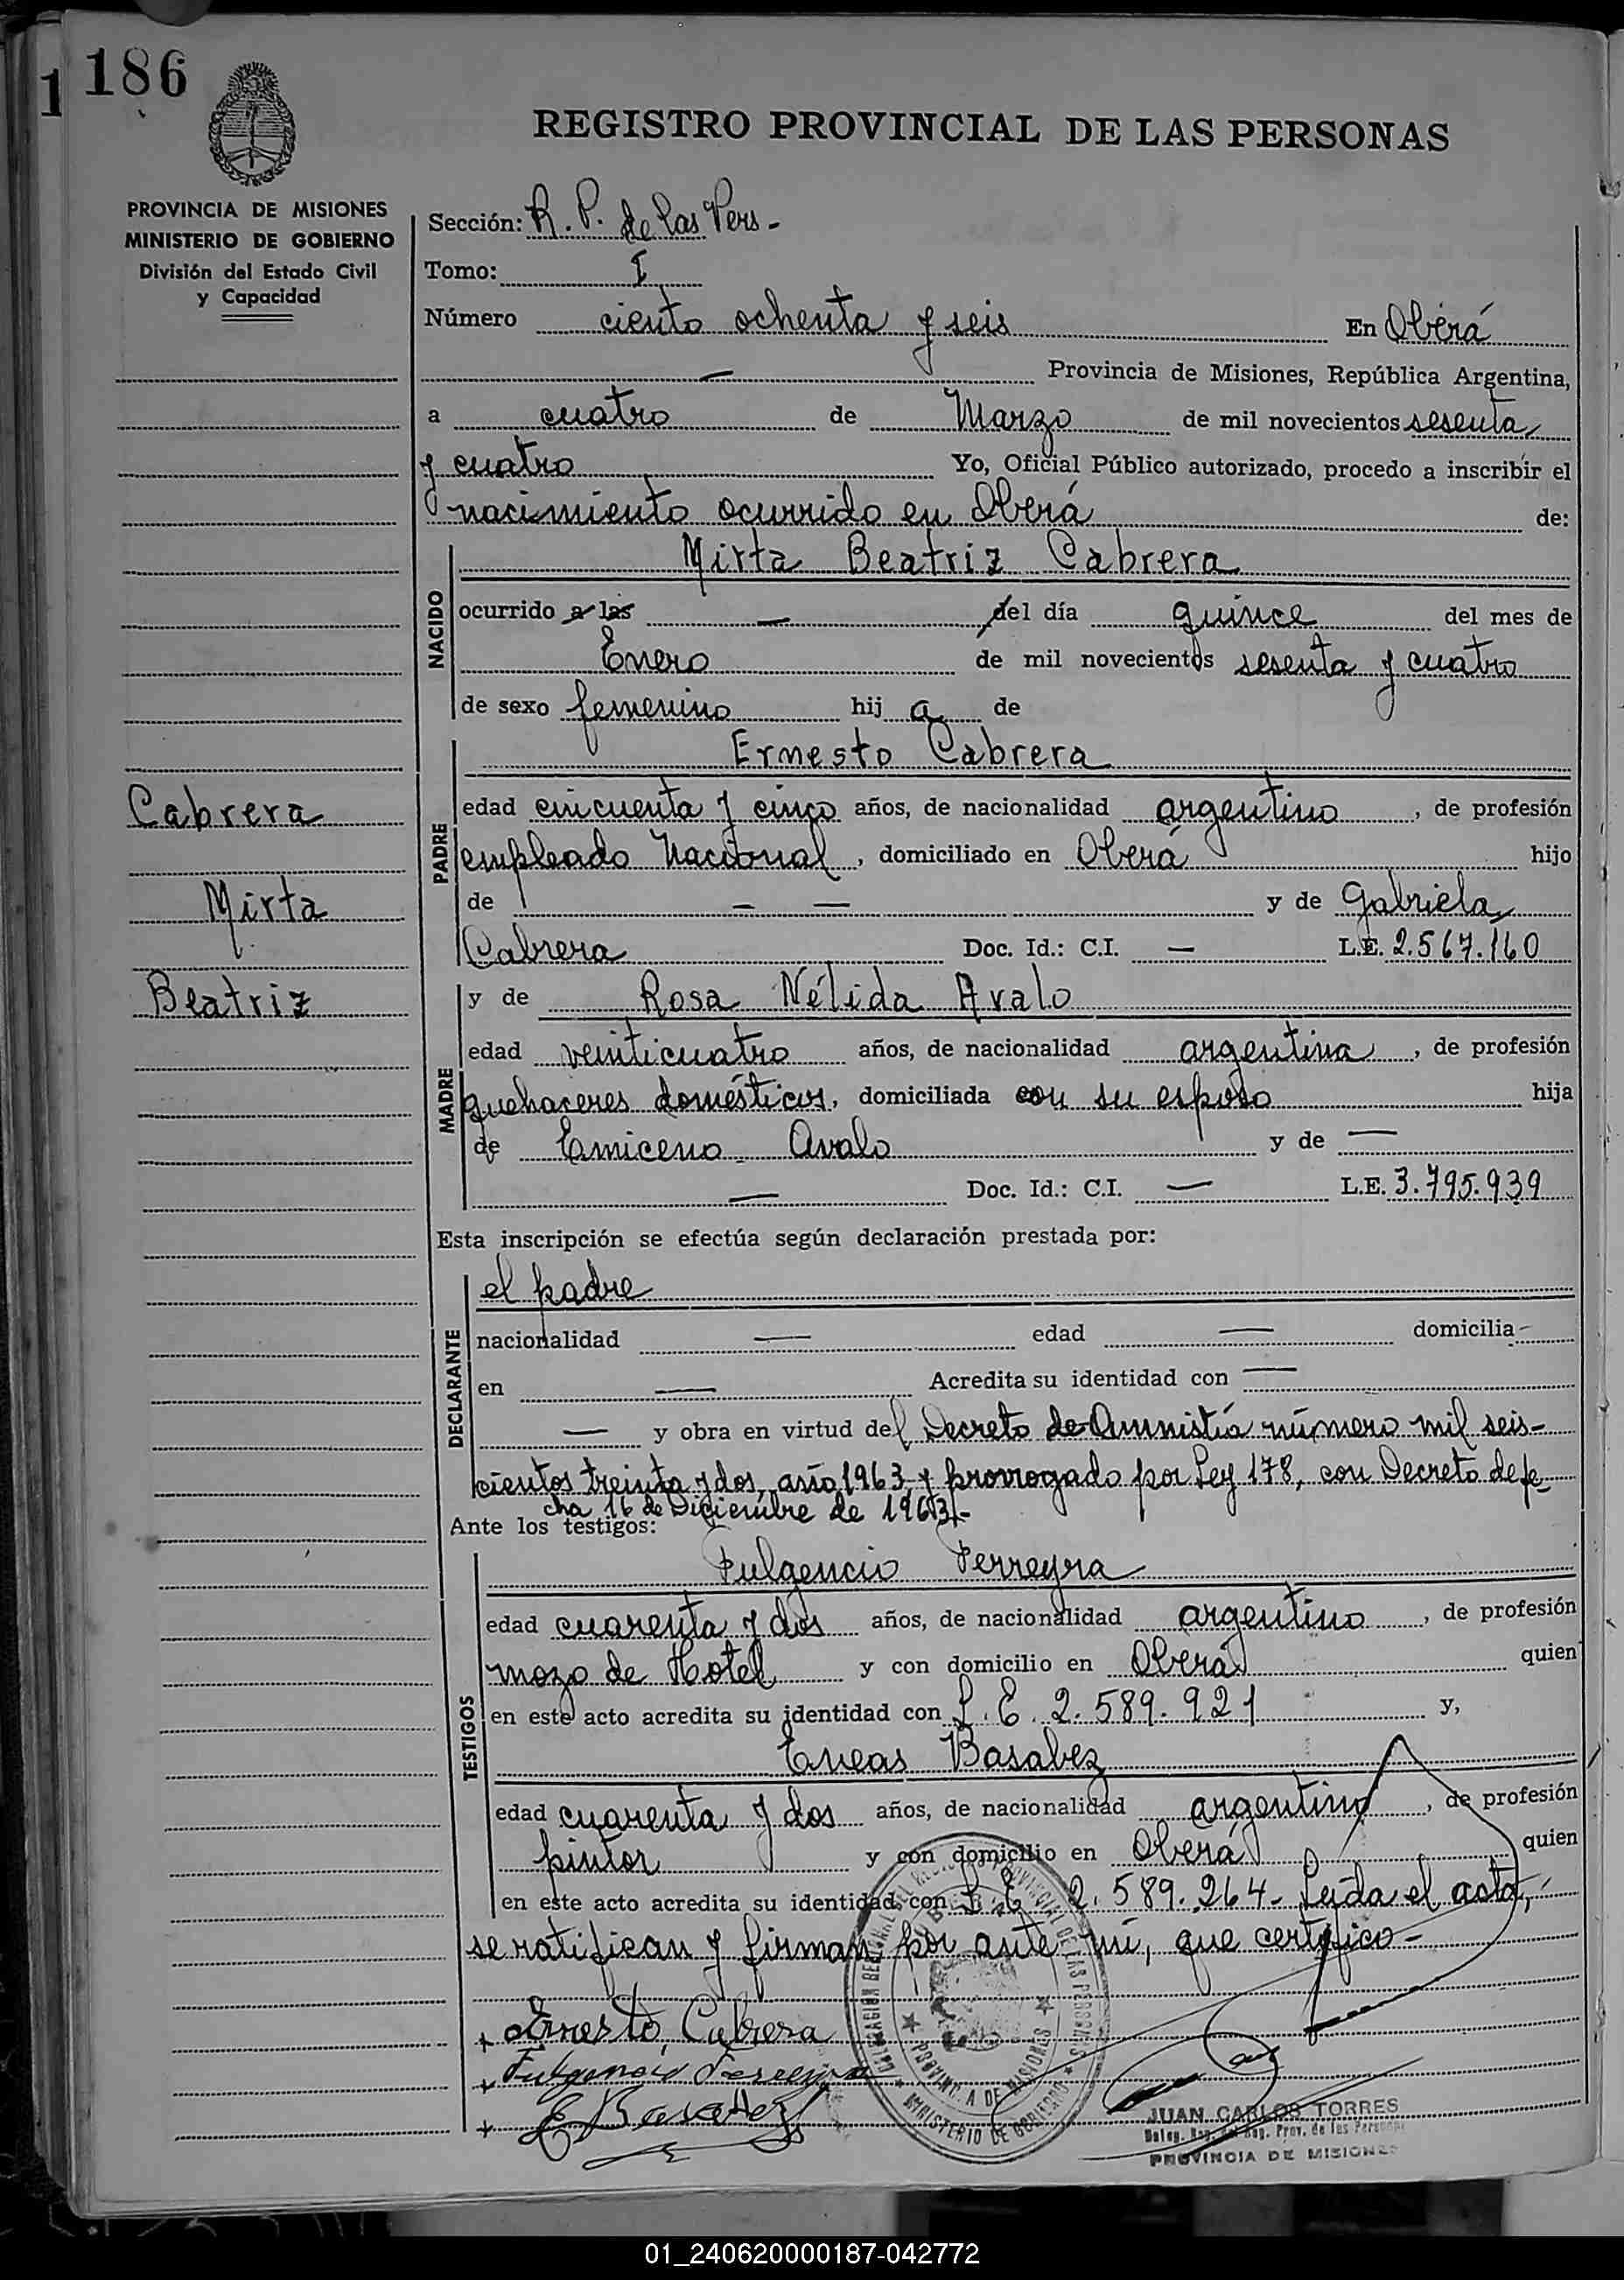 1
186
REGISTRO PROVINCIAL DE LAS PERSONAS
PROVINCIA DE MISIONES
MINISTERIO DE GOBIERNO
División del Estado Civil
y Capacidad
Sección: R. P. de las Pers -
Tomo: I
Número ciento ochenta y seis En Oberá
— Provincia de Misiones, República Argentina,
a cuatro de Marzo de mil novecientos sesenta
y cuatro Yo, Oficial Público autorizado, procedo a inscribir el
nacimiento ocurrido en Oberá de:
NACIDO
Mirta Beatriz Cabrera
ocurrido a las — del día quince del mes de
Enero de mil novecientos sesenta y cuatro
de sexo femenino hij a de
PADRE
Ernesto Cabrera
edad cincuenta y cinco años, de nacionalidad argentino, de profesión
empleado Nacional, domiciliado en Oberá hijo
de — — y de Gabriela
Cabrera Doc. Id.: C.I. — L.E. 2.567.160
Cabrera
Mirta
Beatriz
MADRE
y de Rosa Nélida Avalo
edad veinticuatro años, de nacionalidad argentina, de profesión
quehaceres domésticos, domiciliada con su esposo hija
de Emiceno Avalo y de —
— Doc. Id.: C.I. — L.E. 3.795.939
Esta inscripción se efectúa según declaración prestada por:
DECLARANTE
el padre
nacionalidad — edad — domicilia-
en — Acredita su identidad con —
— y obra en virtud del Decreto de Amnistía número mil seis-
cientos treinta y dos, año 1963 y prorrogado por Ley 178, con Decreto de fe
cha 16 de Diciembre de 1963.-
Ante los testigos:
TESTIGOS
Fulgencio Ferreyra
edad cuarenta y dos años, de nacionalidad argentino, de profesión
mozo de Hotel y con domicilio en Oberá quien
en este acto acredita su identidad con L. E. 2.589.921 y,
Eneas Basabez
edad cuarenta y dos años, de nacionalidad argentino, de profesión
pintor y con domicilio en Oberá quien
en este acto acredita su identidad con L. E. 2.589.264 - Leída el acta,
se ratifican y firman por ante mí, que certifico -
+ Ernesto Cabrera
+ Fulgencio Ferreyra
+ E Basabez
PROVINCIAL DE LAS PERSONAS
PROVINCIA DE MISIONES
MINISTERIO DE GOBIERNO
JUAN CARLOS TORRES
Prov. de las Personas
PROVINCIA DE MISIONES
01_240620000187-042772